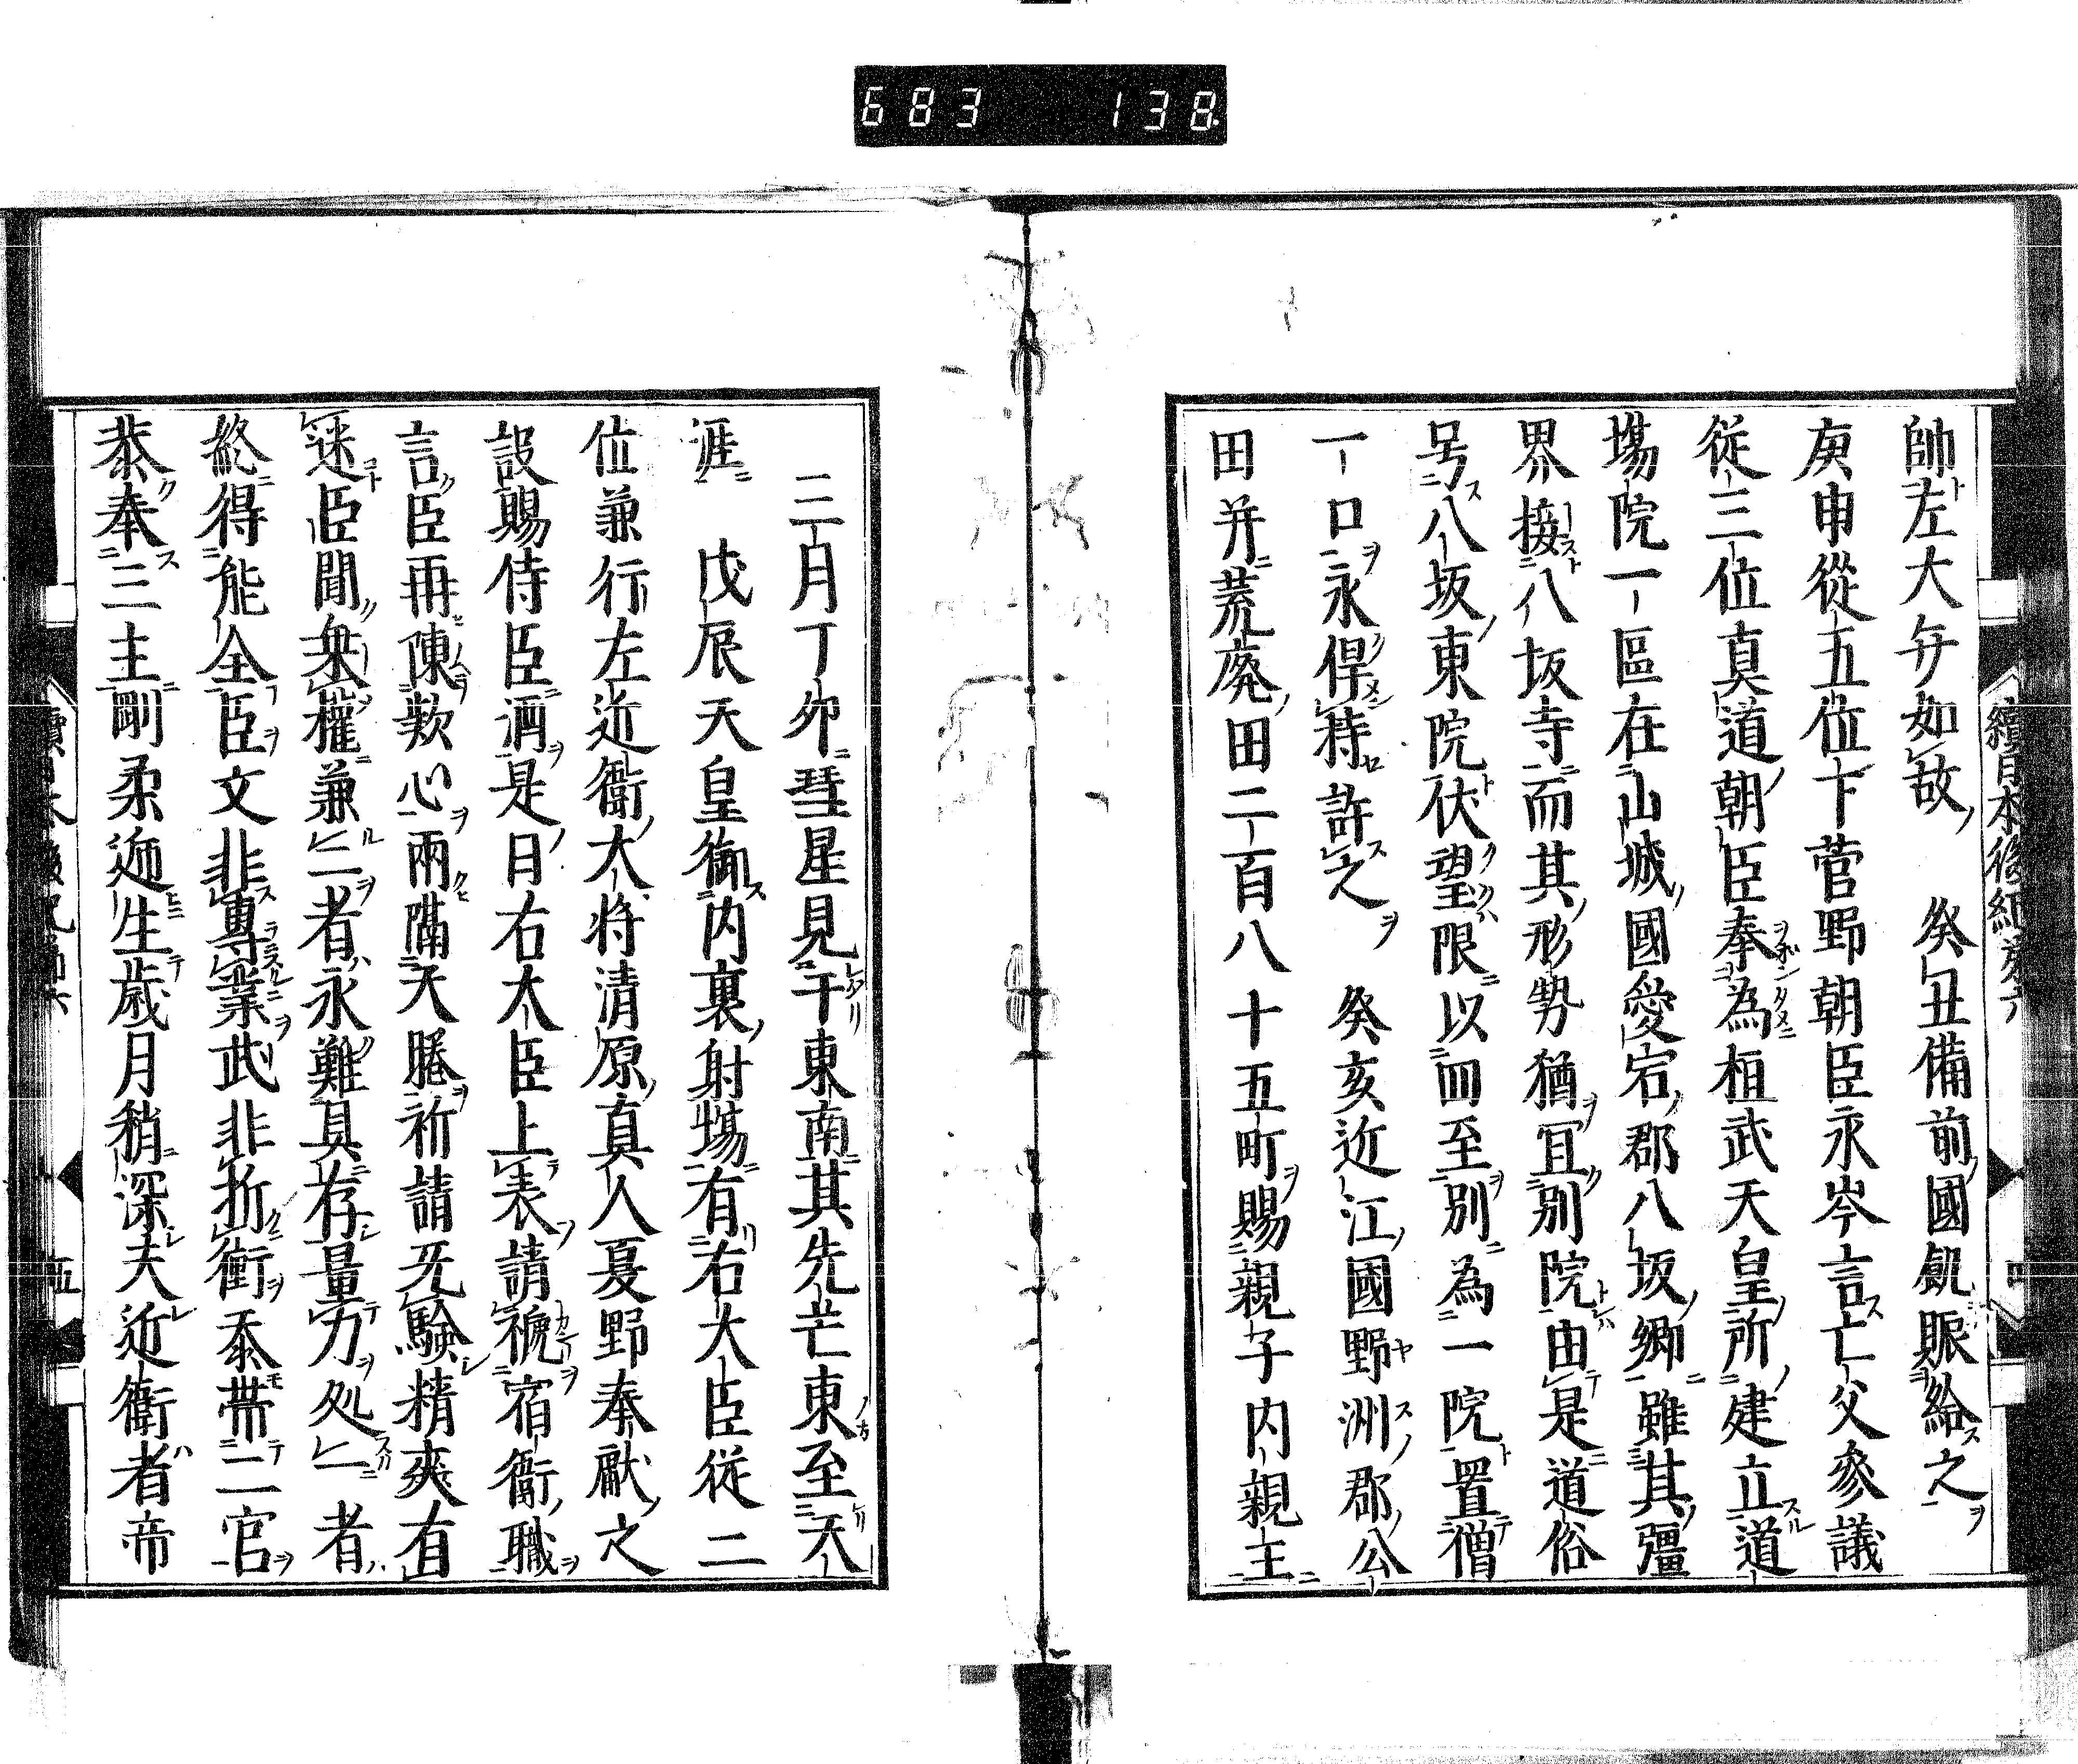 683 138
續日本後紀第六
帥左大弁如故　癸丑備前國飢賑給之
庚申從五位下菅野朝臣永岑言亡父參議
從三位真道朝臣奉為桓武天皇所建立道
塲院一區在山城國愛宕郡八坂郷雖其疆
界接八坂寺而其形勢猶宜別院由是道俗
号八坂東院伏望限以四至別為一院置僧
一口永俾持許之　癸亥近江國野洲郡公
田并荒廃田二百八十五町賜親子内親王
三月丁卯彗星見于東南其先芒東至天
涯　戊辰天皇御内裏射塲有右大臣從二
位兼行左近衛大将清原真人夏野奉獻之
設賜侍臣酒是日右大臣上表請褫宿衛職
言臣再陳欵心兩隔天睠祈請无驗精爽有
迷臣聞衆權兼亡者永難具存量力処亡者
終得能全臣文非專業武非折衝忝帯二官
恭奉三主剛柔迤生歳月稍深夫近衛者帝
五